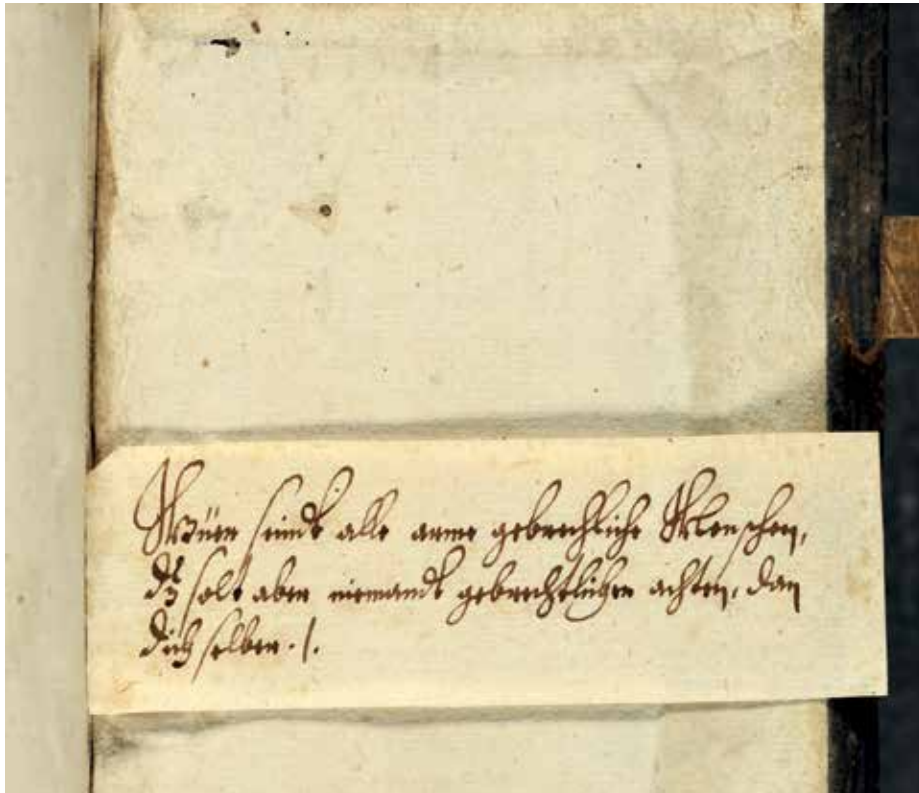 Wüer seindt alle arme gebrechliche Menschen,
du solt aber niemandt gebrechlicher achten, dan
dich selber. /.